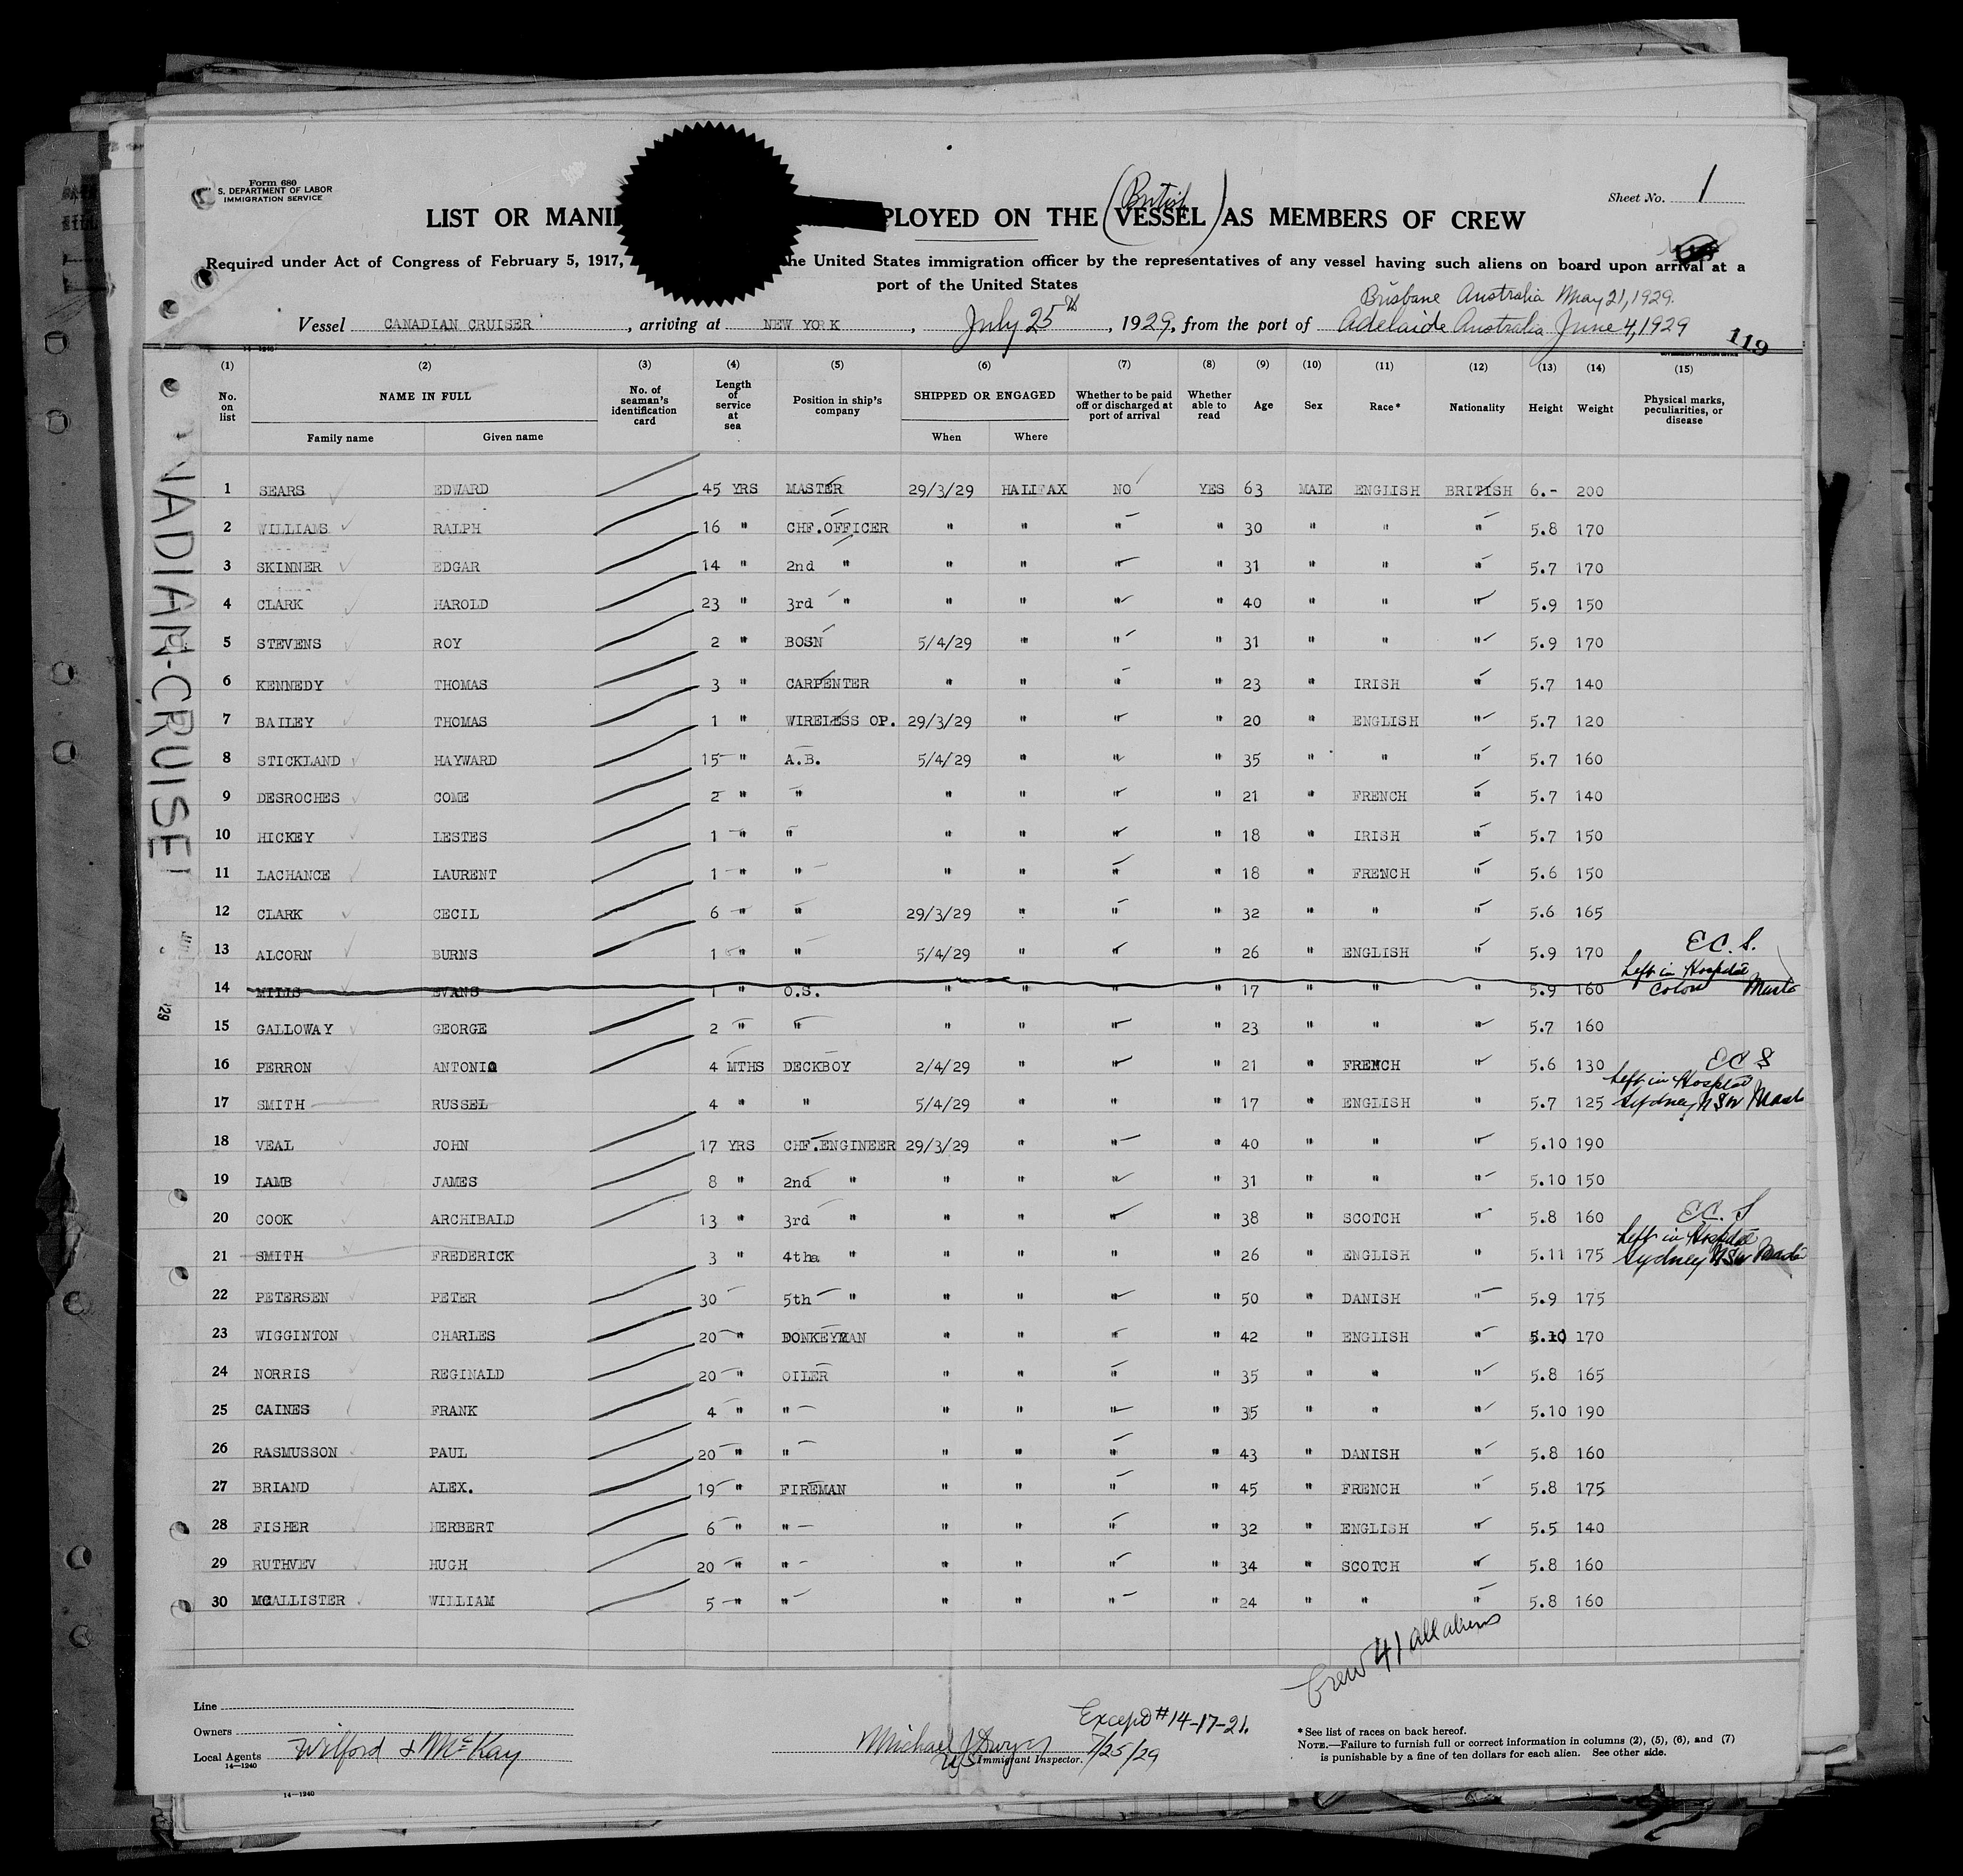 Form 680
S. DEPARTMENT OF LABOR
IMMIGRATION SERVICE
Sheet No. 1
(British)
LIST OR MANI PLOYED ON THE VESSEL AS MEMBERS OF CREW
Required under Act of Congress of February 5, 1917, the United States immigration officer by the representatives of any vessel having such aliens on board upon arrival at a
port of the United States
Brisbane Australia May 21, 1929.
Vessel CANADIAN CRUISER, arriving at NEW YORK, July 25th, 1929, from the port of Adelaide Australia June 4, 1929
119
14-1240
(1) (2) (3) (4) (5) (6) (7) (8) (9) (10) (11) (12) (13) (14) (15)
No. on list NAME IN FULL No. of seaman's identification card Length of service at sea Position in ship's company SHIPPED OR ENGAGED Whether to be paid off or discharged at port of arrival Whether able to read Age Sex Race* Nationality Height Weight Physical marks, peculiarities, or disease
Family name Given name When Where
1 SEARS EDWARD 45 YRS MASTER 29/3/29 HALIFAX NO YES 63 MALE ENGLISH BRITISH 6.- 200
2 WILLIAMS RALPH 16 " CHF.OFFICER " " " " 30 " " " 5.8 170
3 SKINNER EDGAR 14 " 2nd " " " " " 31 " " " 5.7 170
4 CLARK HAROLD 23 " 3rd " " " " " 40 " " " 5.9 150
5 STEVENS ROY 2 " BOSN 5/4/29 " " " 31 " " " 5.9 170
6 KENNEDY THOMAS 3 " CARPENTER " " " " 23 " IRISH " 5.7 140
7 BAILEY THOMAS 1 " WIRELESS OP. 29/3/29 " " " 20 " ENGLISH " 5.7 120
8 STICKLAND HAYWARD 15 " A.B. 5/4/29 " " " 35 " " " 5.7 160
9 DESROCHES COME 2 " " " " " " 21 " FRENCH " 5.7 140
10 HICKEY LESTES 1 " " " " " " 18 " IRISH " 5.7 150
11 LACHANCE LAURENT 1 " " " " " " 18 " FRENCH " 5.6 150
12 CLARK CECIL 6 " " 29/3/29 " " " 32 " " " 5.6 165
13 ALCORN BURNS 1 " " 5/4/29 " " " 26 " ENGLISH " 5.9 170 E.C.S.
Left in Hospital
14 MILLS EVANS 1 " O.S. " " " " 17 " " " 5.9 160 Colon
15 GALLOWAY GEORGE 2 " " " " " " 23 " " " 5.7 160
16 PERRON ANTONIO 4 MTHS DECKBOY 2/4/29 " " " 21 " FRENCH " 5.6 130 E C S
Left in Hospital
17 SMITH RUSSEL 4 " " 5/4/29 " " " 17 " ENGLISH " 5.7 125 Sydney NSW
18 VEAL JOHN 17 YRS CHF.ENGINEER 29/3/29 " " " 40 " " " 5.10 190
19 LAMB JAMES 8 " 2nd " " " " " 31 " " " 5.10 150
20 COOK ARCHIBALD 13 " 3rd " " " " " 38 " SCOTCH " 5.8 160 E.C.S
Left in Hospital
21 SMITH FREDERICK 3 " 4tha " " " " " 26 " ENGLISH " 5.11 175 Sydney NSW
22 PETERSEN PETER 30 5th " " " " " 50 " DANISH " 5.9 175
23 WIGGINTON CHARLES 20 " DONKEYMAN " " " " 42 " ENGLISH " 5.10 170
24 NORRIS REGINALD 20 " OILER " " " " 35 " " " 5.8 165
25 CAINES FRANK 4 " " " " " " 35 " " " 5.10 190
26 RASMUSSON PAUL 20 " " " " " " 43 " DANISH " 5.8 160
27 BRIAND ALEX. 19 " FIREMAN " " " " 45 " FRENCH " 5.8 175
28 FISHER HERBERT 6 " " " " " " 32 " ENGLISH " 5.5 140
29 RUTHVEV HUGH 20 " " " " " " 34 " SCOTCH " 5.8 160
30 MCALLISTER WILLIAM 5 " " " " " " 24 " " " 5.8 160
Crew 41 all aliens
Except #14-17-21.
Line
Owners
Local Agents Wilford & McKay
14-1240
Michael J Dwyer 7/25/29
US Immigrant Inspector.
*See list of races on back hereof.
NOTE.—Failure to furnish full or correct information in columns (2), (5), (6), and (7)
is punishable by a fine of ten dollars for each alien. See other side.
14-1240
NADIAN-CRUISE
29